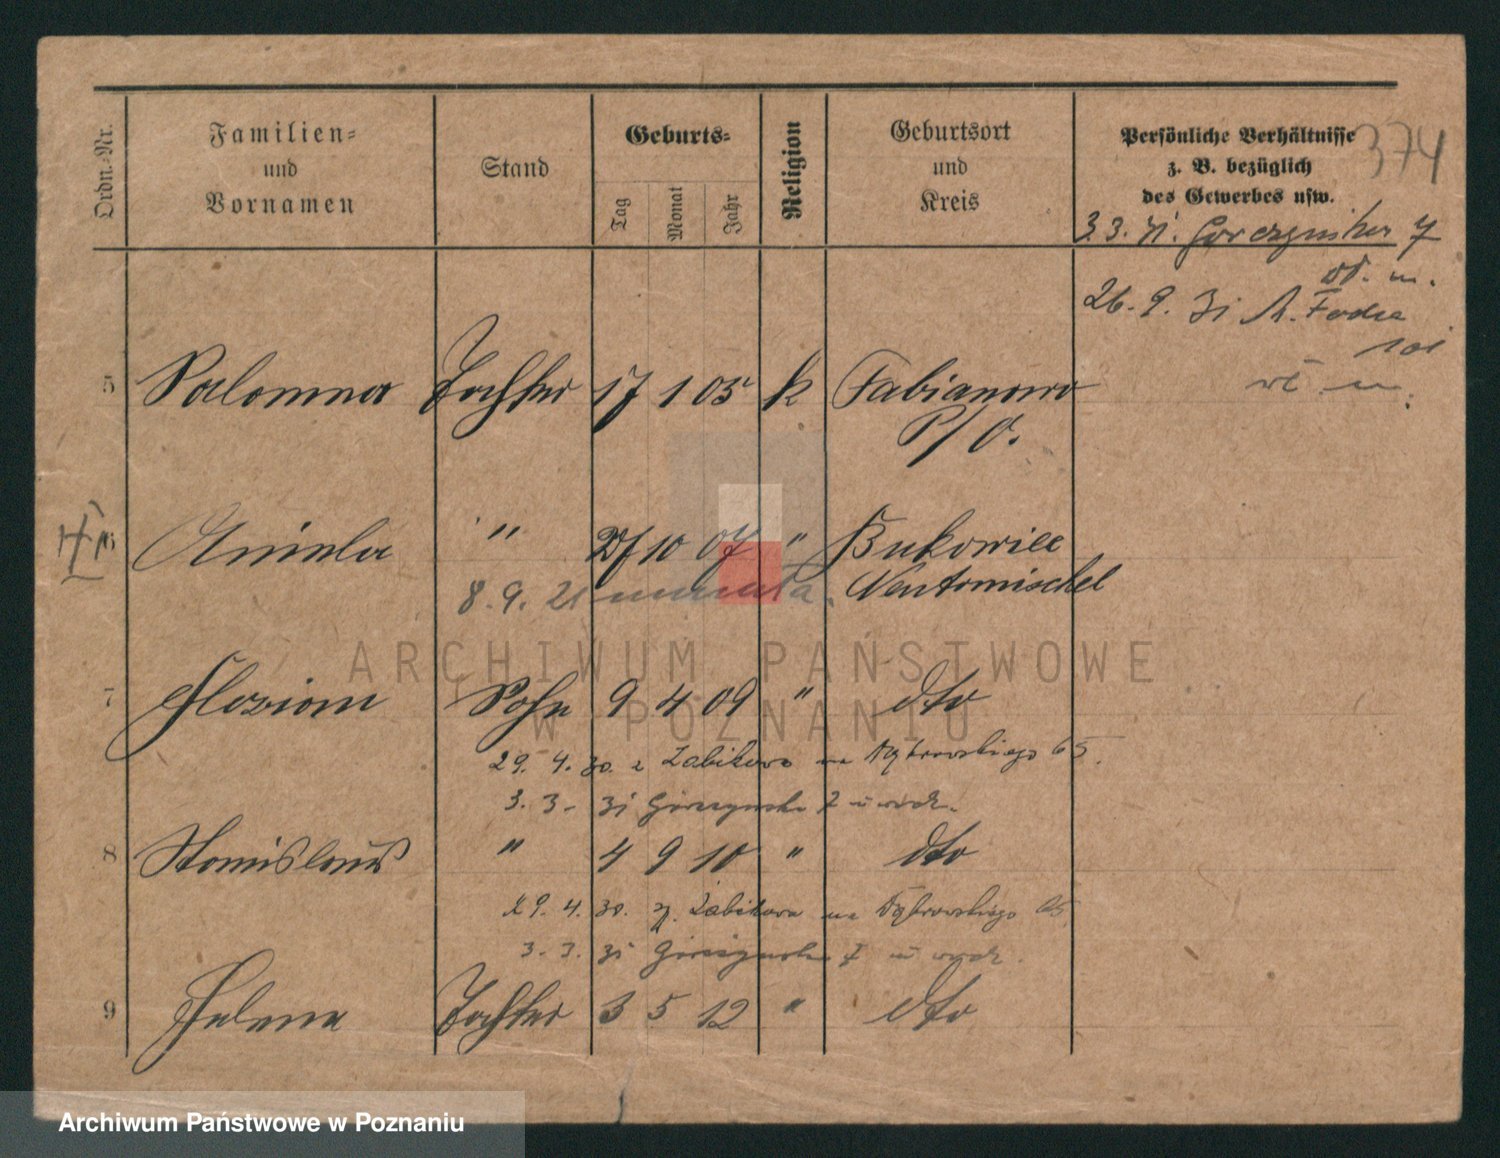 Ordn.-Nr.
Familien-
und
Vornamen
Stand
Geburts-
Tag
Monat
Jahr
Religion
Geburtsort
und
Kreis
Persönliche Verhältnisse
z. B. bezüglich
des Gewerbes usw.
374
3.3.31. Gorczynska 7
26.9.31
101
5 Salomea Tochter 17 1 05 k Fabianowo
P/O.
6 Aniela " 27 10 07 " Bukowiec
8.9.21 umarła. Neutomischel
7 Florian Sohn 9 4 09 " dto
29.4.30. z Zabikowa na Dąbrowskiego 65.
3.3. 31 Górczynska 7
8 Stanislaus " 4 9 10 " dto
29.4.30. z Zabikowa na Dąbrowskiego 65
3.3. 31 Górczynska 7
9 Helena Tochter 3 5 12 " dto
ARCHIWUM PAŃSTWOWE
W POZNANIU
Archiwum Państwowe w Poznaniu